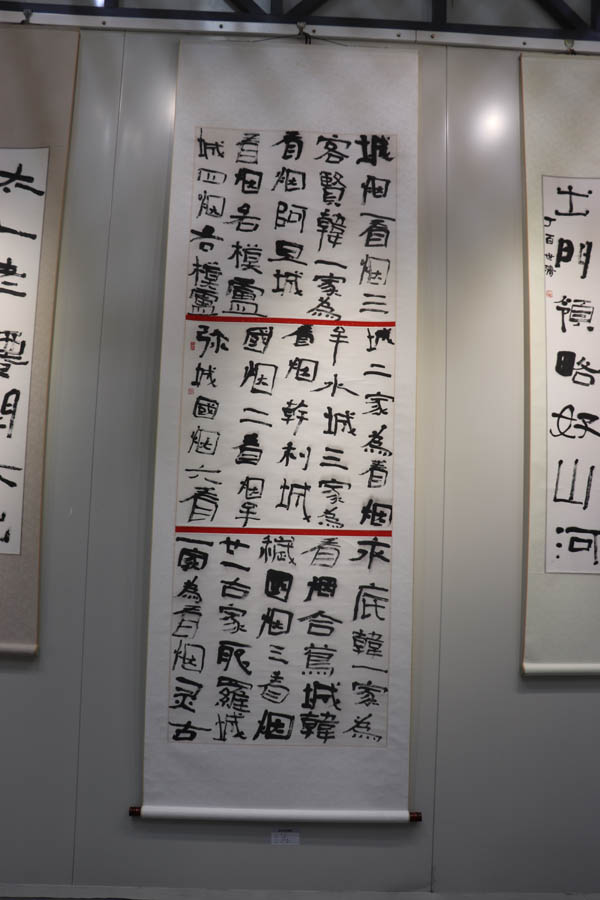 城烟一看烟三
客賢韓一家為
看烟阿旦城
看烟名模盧
城四烟古模盧
城二家為看烟
牟水城三家為
看烟幹利城
國烟二看烟牟
弥城國烟六看
求底韓一家為
看烟舍蔦城韓
穢國烟三看烟
廿一古家耶羅城
一家為看烟炅古
出門領略好山河
丁酉
太一老